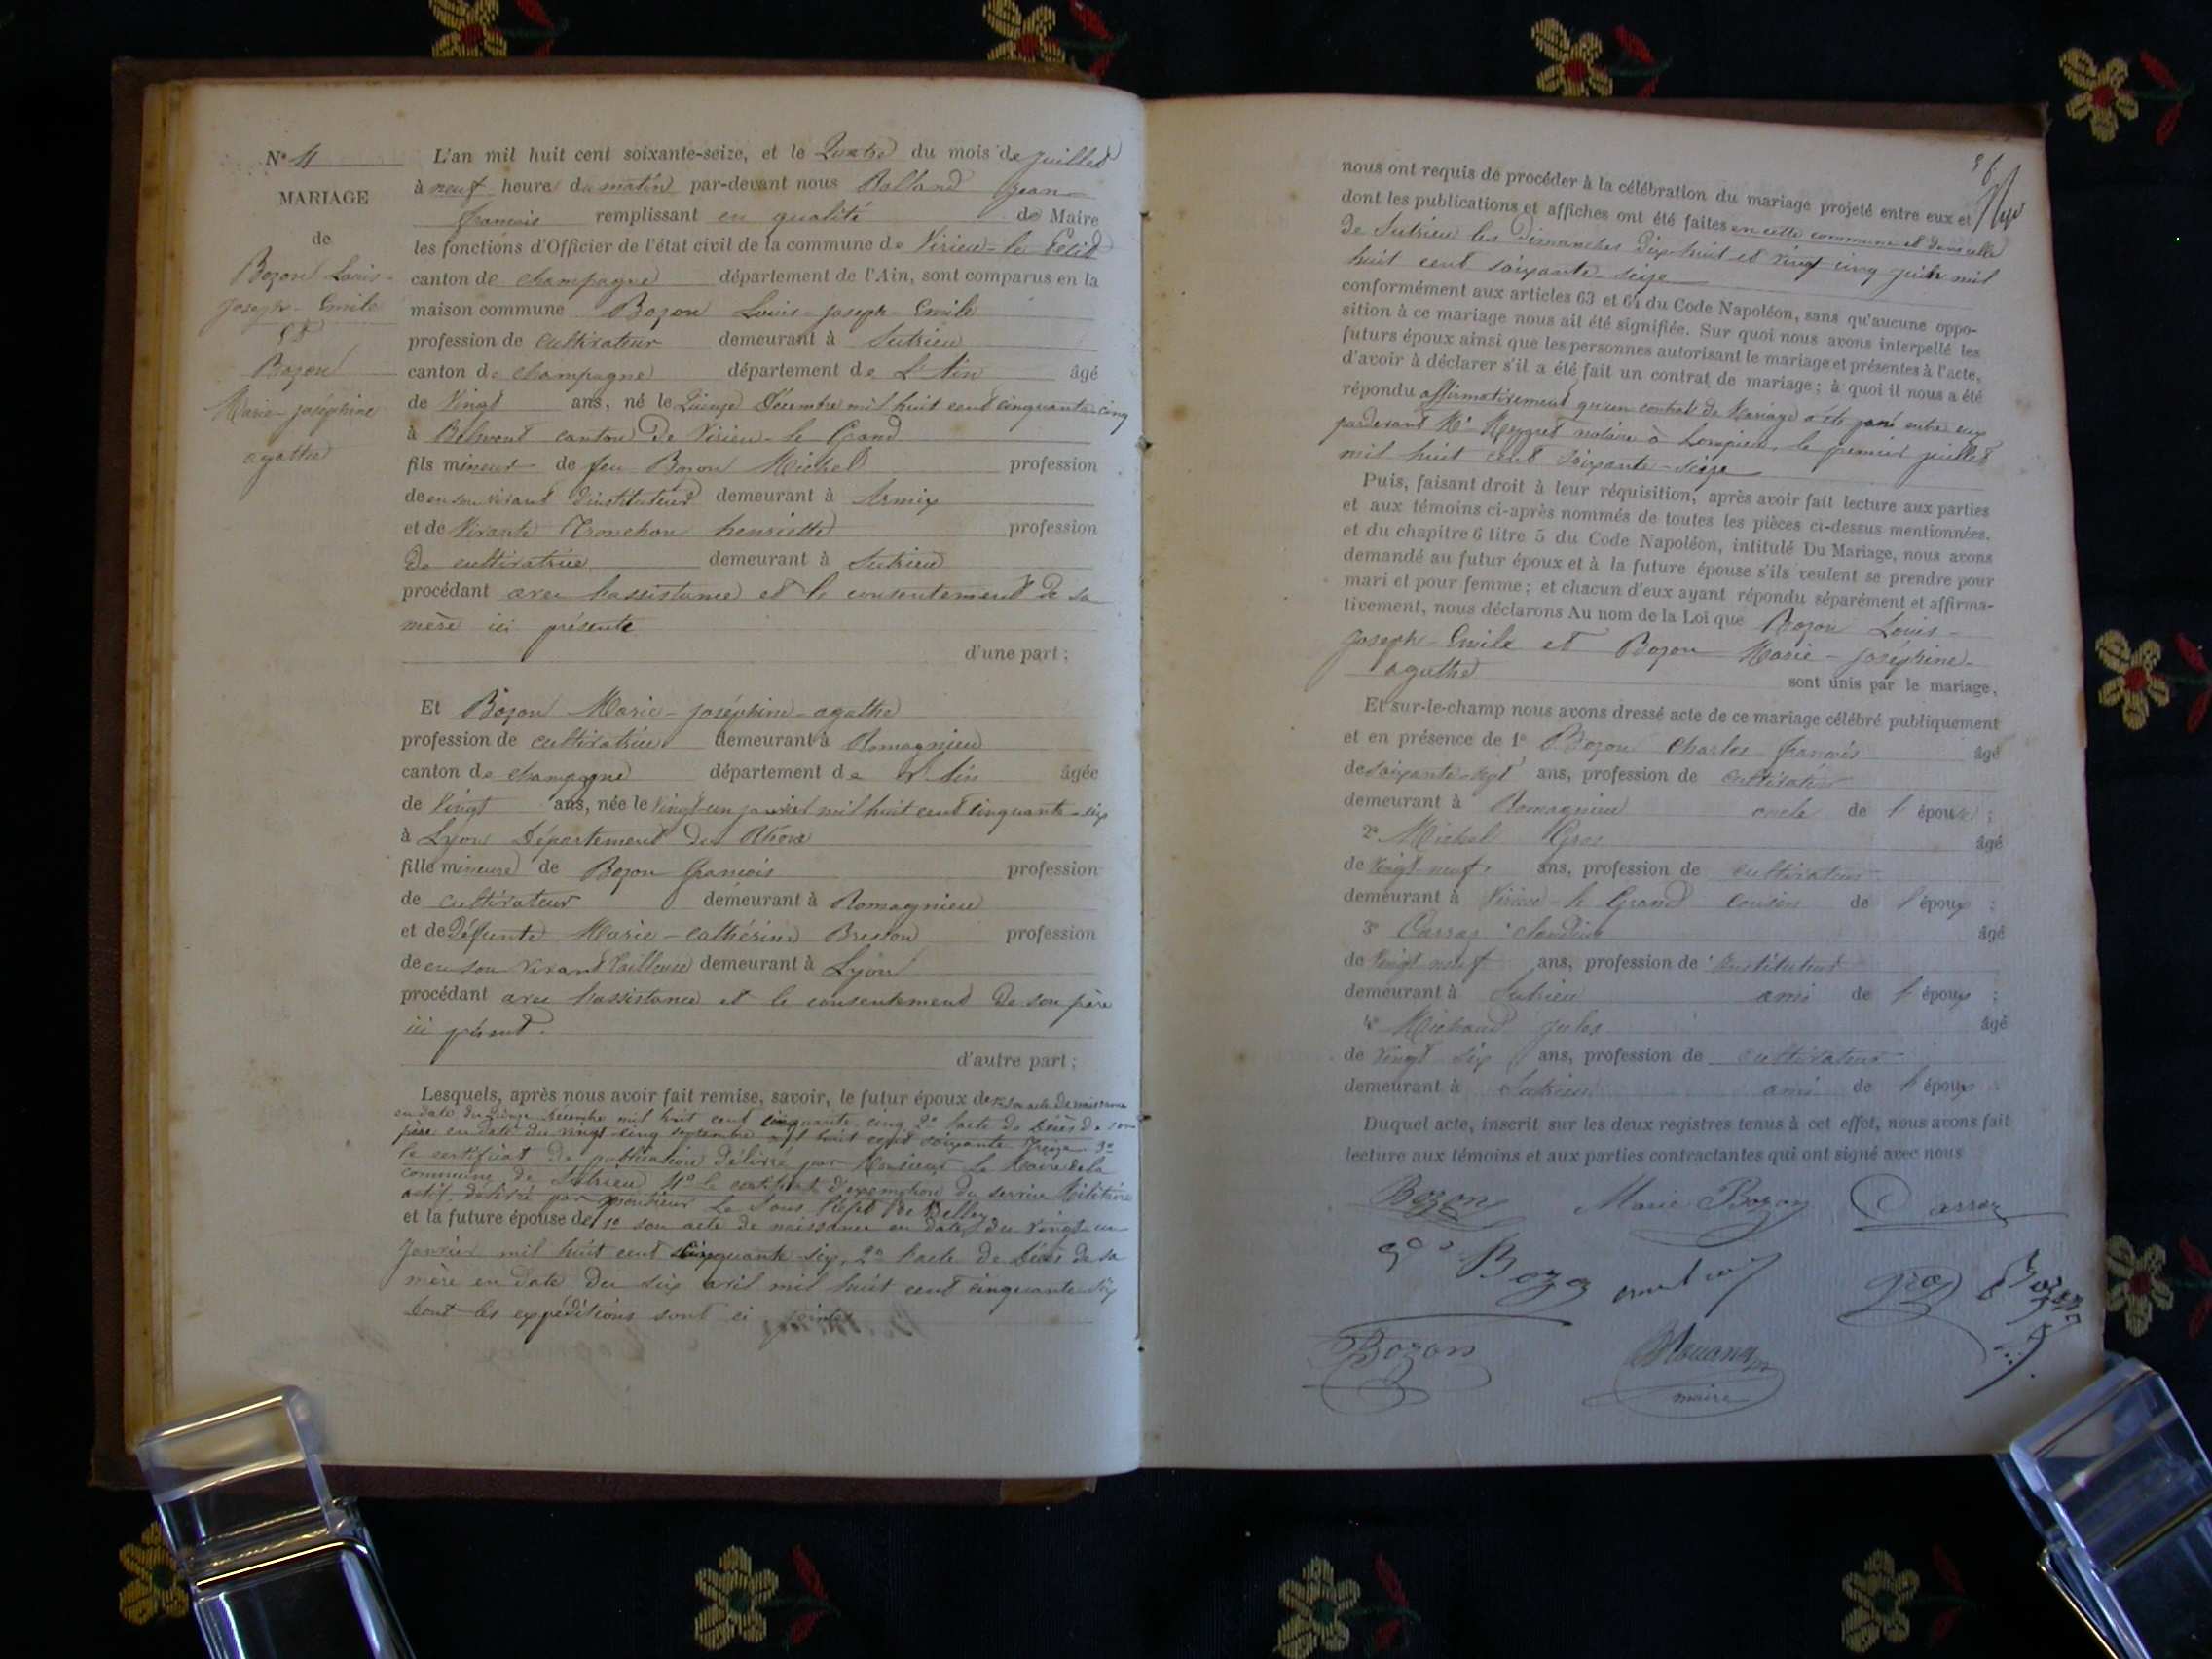 N° 4
MARIAGE
de
Bozon Louis-
Joseph-Emile
et
Bozon
Marie-Joséphine
agathe
L'an mil huit cent soixante-seize, et le Quatre du mois de juillet
à neuf heure du matin par-devant nous Balland Jean
françois remplissant en qualité de Maire
les fonctions d'Officier de l'état civil de la commune de Virieu-le Petit
canton de champagne département de l'Ain, sont comparus en la
maison commune Bozon Louis-Joseph-Emile
profession de cultivateur demeurant à Sutrieu
canton de champagne département de L'Ain âgé
de Vingt ans, né le Quinze Décembre mil huit cent cinquante-cinq
à Belmont canton de Virieu-le Grand
fils mineur de feu Bozon Michel profession
de en son vivant d'instituteur demeurant à Armix
et de Vivante Tronchon henriette profession
de cultivatrice demeurant à Sutrieu
procédant avec l'assistance et le consentement de sa
mère ici présente
d'une part;
Et Bozon Marie-Joséphine-agathe
profession de cultivatrice demeurant à Romagnieu
canton de champagne département de L'Ain âgée
de Vingt ans, née le Vingt-un janvier mil huit cent cinquante-six
à Lyon Département du Rhone
fille mineure de Bozon françois profession
de cultivateur demeurant à Romagnieu
et de Défunte Marie-Cathérine Bresson profession
de en son vivant tailleuse demeurant à Lyon
procédant avec l'assistance et le consentement de son père
ici présent.
d'autre part;
Lesquels, après nous avoir fait remise, savoir, le futur époux de 1° son acte de naissance
en date du Quinze Décembre mil huit cent cinquante-cinq 2° l'acte de Décès de son
père en date du vingt-cinq septembre mil huit cent soixante treize 3°
le certificat de publication délivré par Monsieur Le Maire de la
commune de Sutrieu 4° le certificat d'exemption du service Militaire
actif délivré par Monsieur Le Sous Préfet de Belley
et la future épouse de 1° son acte de naissance en date du vingt-un
Janvier mil huit cent cinquante-six, 2° l'acte de Décès de sa
mère en date du six avril mil huit cent cinquante-six
dont les expéditions sont ci jointes
nous ont requis de procéder à la célébration du mariage projeté entre eux et
dont les publications et affiches ont été faites en cette commune et dans celle
de Sutrieu les Dimanches Dix-huit et vingt cinq juin mil
huit cent soixante-seize
conformément aux articles 63 et 64 du Code Napoléon, sans qu'aucune oppo-
sition à ce mariage nous ait été signifiée. Sur quoi nous avons interpellé les
futurs époux ainsi que les personnes autorisant le mariage et présentes à l'acte,
d'avoir à déclarer s'il a été fait un contrat de mariage; à quoi il nous a été
répondu affirmativement qu'un contrat de Mariage a été passé entre eux
pardevant Me Meygret notaire à Lompnieu, le premier juillet
mil huit cent soixante-seize
Puis, faisant droit à leur réquisition, après avoir fait lecture aux parties
et aux témoins ci-après nommés de toutes les pièces ci-dessus mentionnées,
et du chapitre 6 titre 5 du Code Napoléon, intitulé Du Mariage, nous avons
demandé au futur époux et à la future épouse s'ils veulent se prendre pour
mari et pour femme; et chacun d'eux ayant répondu séparément et affirma-
tivement, nous déclarons Au nom de la Loi que Bozon Louis-
Joseph-Emile et Bozon Marie-Joséphine-
agathe sont unis par le mariage,
Et sur-le-champ nous avons dressé acte de ce mariage célébré publiquement
et en présence de 1° Bozon Charles françois âgé
de soixante-sept ans, profession de cultivateur
demeurant à Romagnieu oncle de l'épouse;
2° Michel Gros âgé
de vingt-neuf ans, profession de cultivateur
demeurant à Virieu-le Grand cousin de l'époux;
3° Carraz Claudius âgé
de vingt neuf ans, profession de Instituteur
demeurant à Sutrieu ami de l'époux;
4° Michaud Jules âgé
de vingt six ans, profession de cultivateur
demeurant à Sutrieu ami de l'époux
Duquel acte, inscrit sur les deux registres tenus à cet effet, nous avons fait
lecture aux témoins et aux parties contractantes qui ont signé avec nous
Bozon Marie Bozon Carraz
Bozon Gros Bozon
Bozon
maire